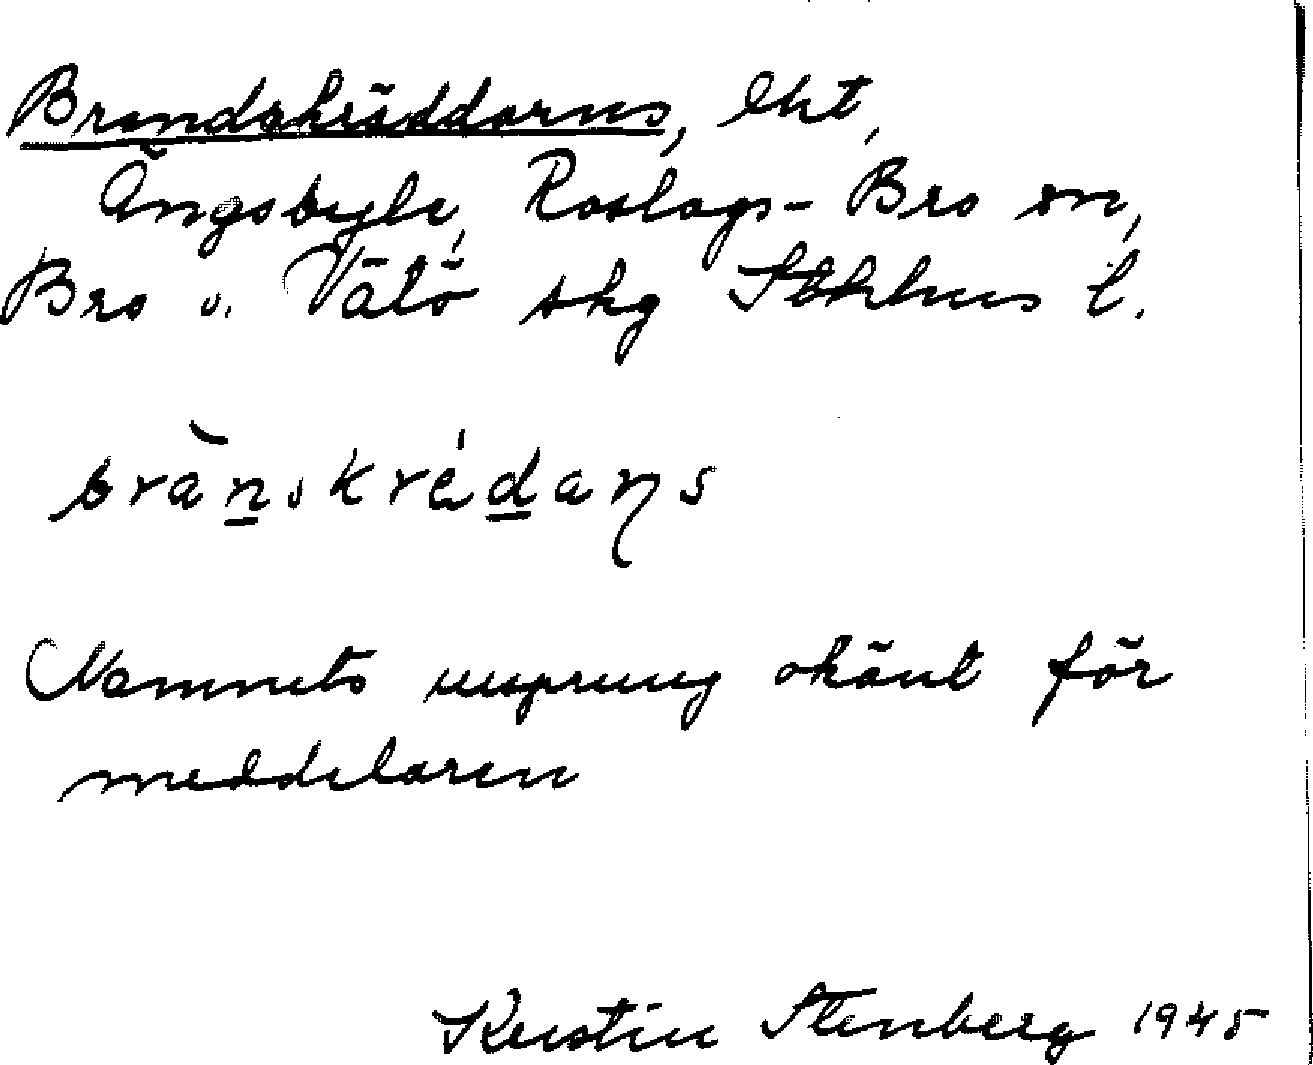 Brandskräddarns, lht,
Ängsbyle, Roslags-Bro sn,
Bro o. Vätö skg Sthlms l.
bràn̲skrédans
Namnets ursprung okänt för
meddelaren
Kerstin Stenberg 1945